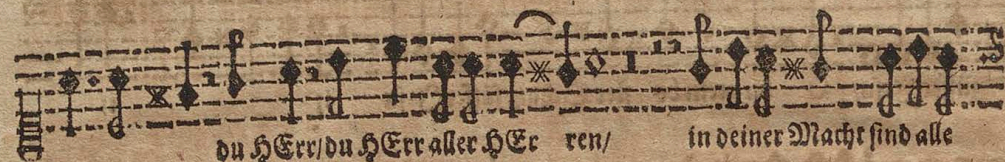 du HErr/du HErr aller HEr ren/ in deiner Macht sind alle